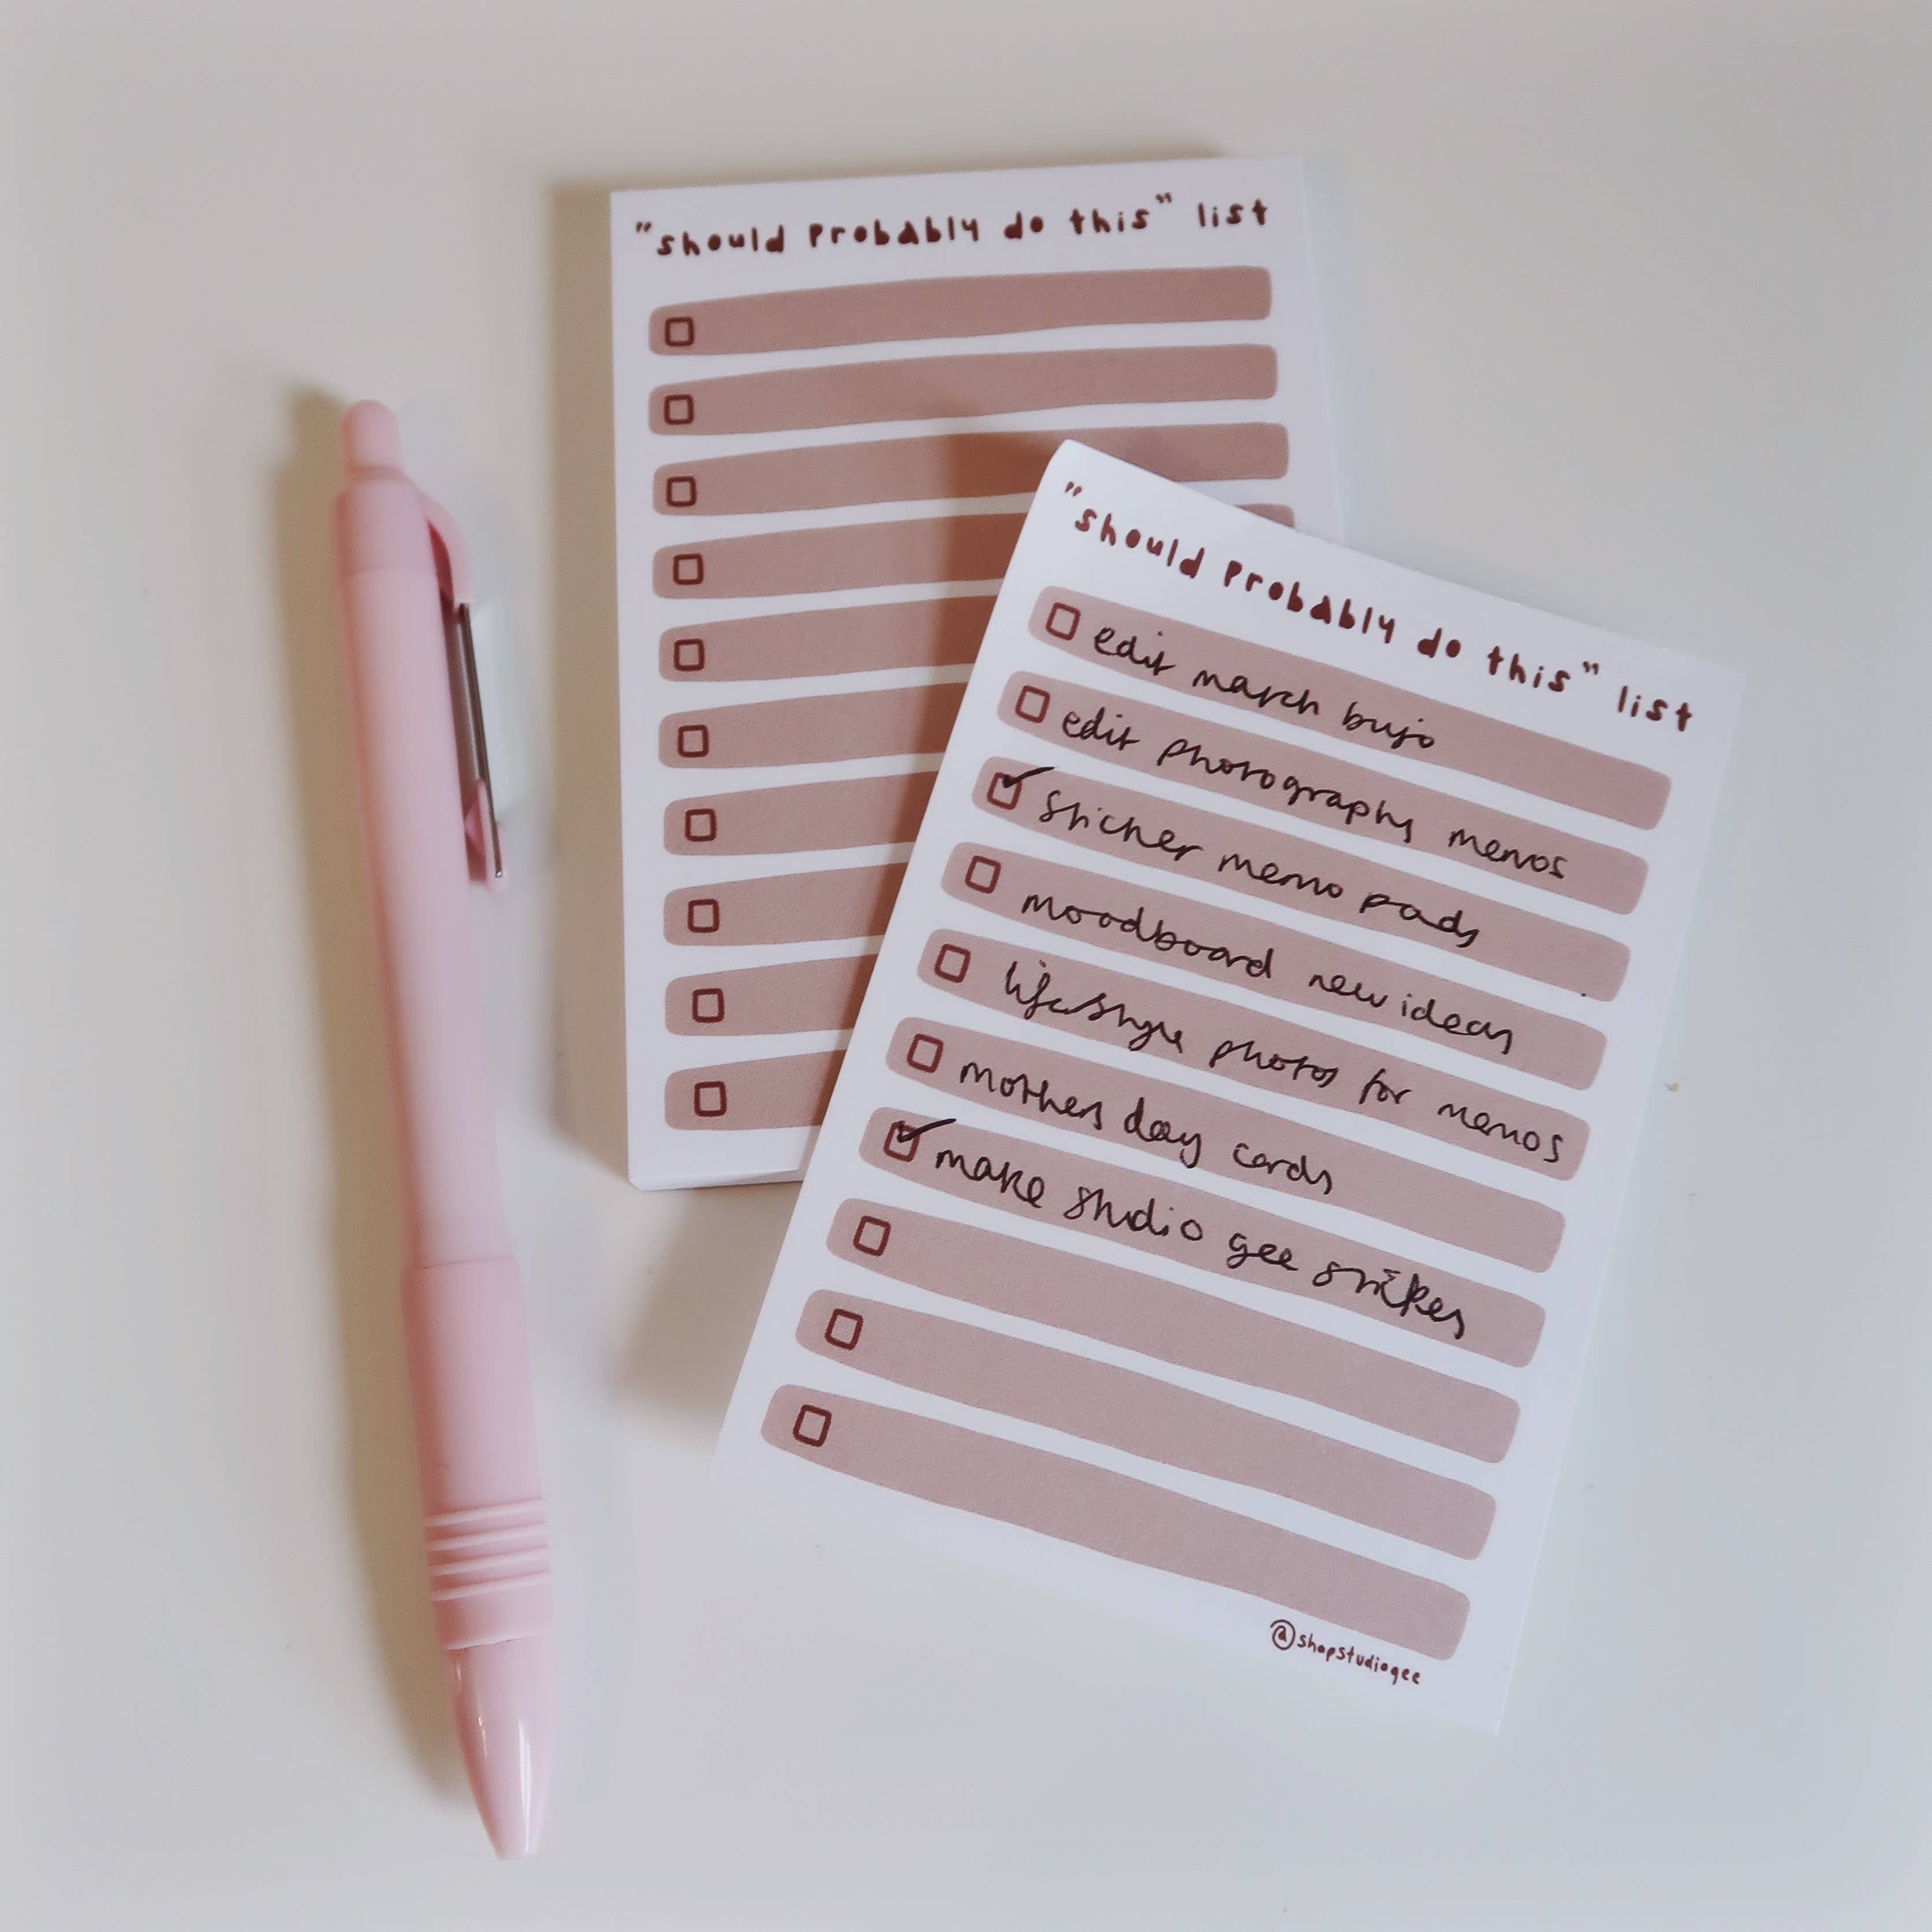 "should probably do this" list
"should probably do this" list
edit march bujo
edit photography memos
sticker memo pads
moodboard new ideas
lifestyle photos for memos
mothers day cards
make studio gee
@shopstudiogee